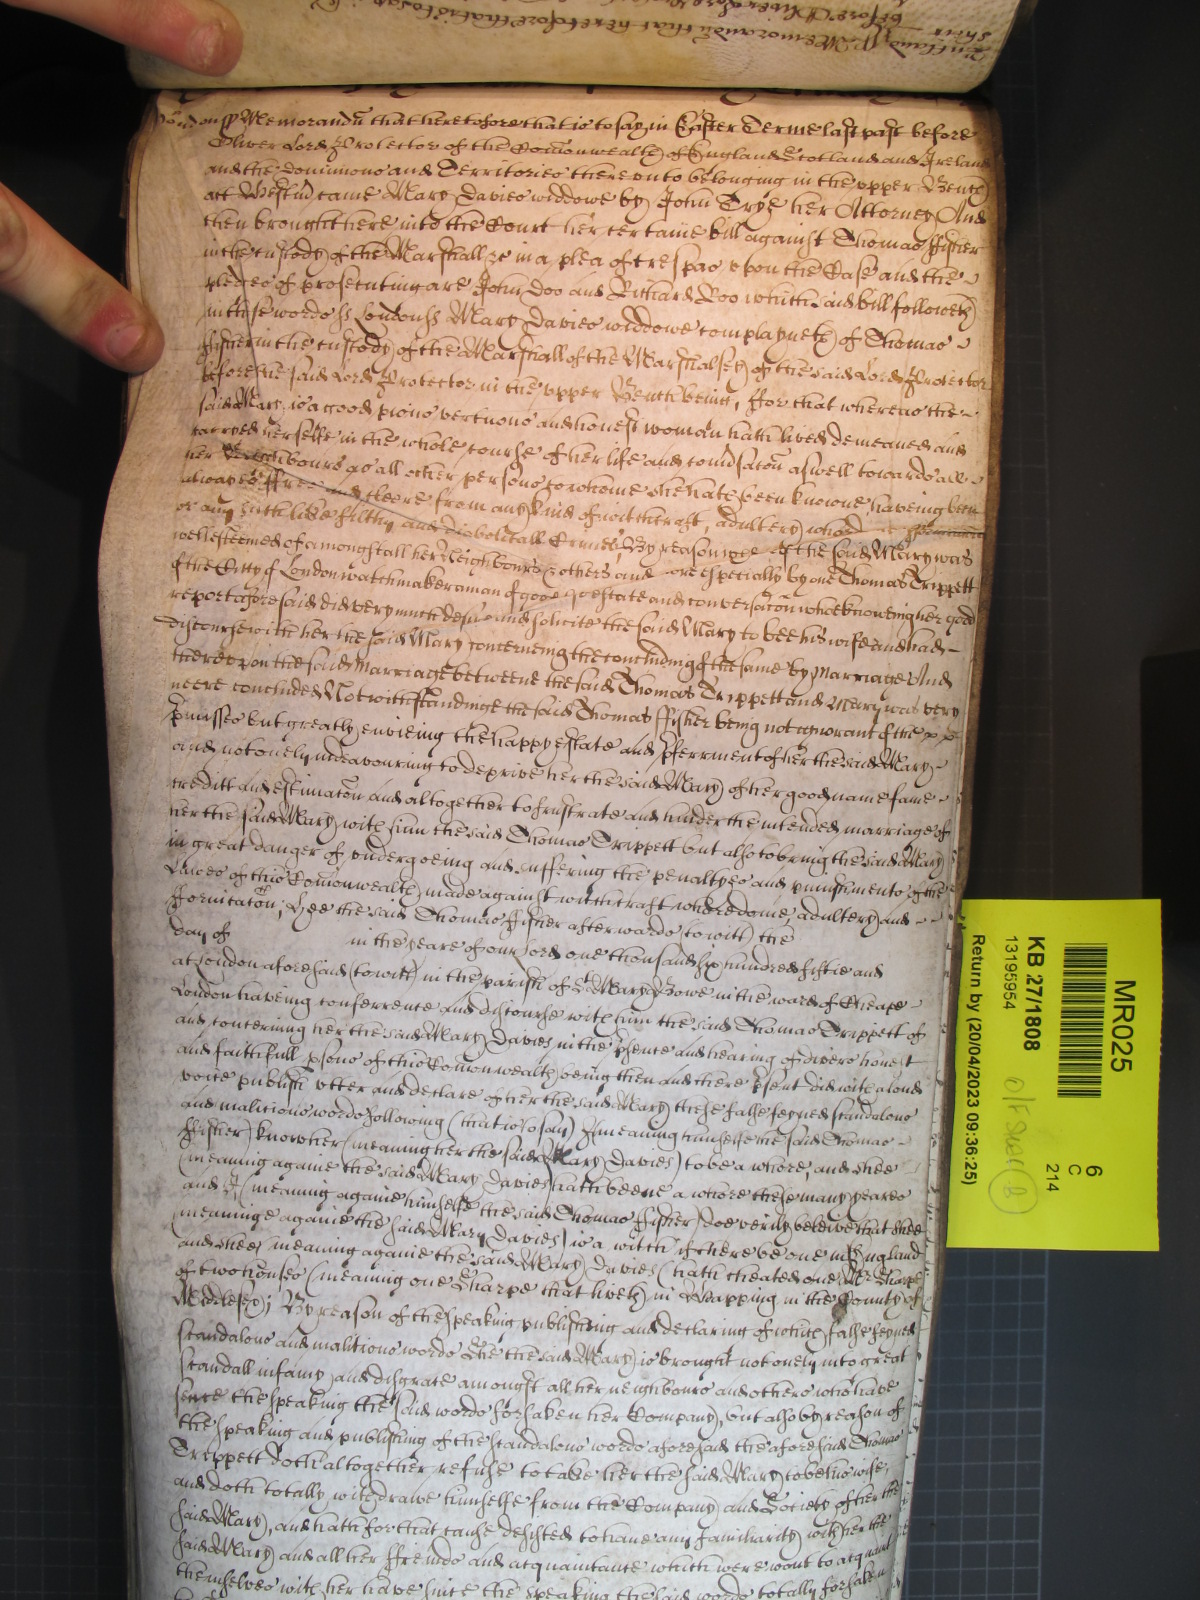 London ss Memorandū that heretofore that is to say in Easter Terme last past before
Oliver Lord Protector of the Com̄onwealth of England Scotland and Ireland
and the dominions and Territories thereunto belonging in the upper Bench
att Westm̄ came Mary Davies widdowe by John Trye her Attorney And
then brought here into the Court her certaine bill against Thomas ffisher
in the custody of the Marshall &c in a plea of trespas upon the Case and the
pledges of prosecuting are John Doo and Richard Roo which said bill followeth
in these words ss London ss Mary Davies widdowe complayneth of Thomas
ffisher in the custody of the Marshall of the Marshalsey of the said Lord Protector
before the said Lord Protector in the upper Bench being, ffor that whereas the
said Mary is a good pious vertuous and honest woman hath lived demeaned and
carryed herselfe in the whole course of her life and con̄saton aswell towards all
her Neighbours as all other persons to whome she hath been knowne, haveing been
alwayes ffree and cleere from any kind of witchcraft, adultery whor
or any such like filthy and diabolicall Crimes, By reason whereof the said Mary was
well esteemed of amongst all her Neighbours & others and more especially by one Thomas Trippett
of the Citty of London watchmaker a man of good estate and conversac̄on who knoweing her good
report aforesaid did very much desire and sollicite the said Mary to bee his wife and had
discourse with her the said Mary concerneing the concluding of the same by Marriage And
thereupon the said Marriage betweene the said Thomas Trippett and Mary was very
neere concluded Notwithstandinge the said Thomas ffisher being not ignorant of the
p̄misses but greatly envieing the happy estate and p̄ferrment of her the said Mary
and not onely indeavouring to deprive her the said Mary of her good name fame
creditt and estimac̄on and altogether to frustrate and hinder the intended marriage of
her the said Mary with him the said Thomas Trippett but also to bring the said Mary
in great danger of undergoeing and suffering the penaltyes and punishments of the
Lawes of this Com̄onwealth made against witchcraft whoredome adultery and
ffornicac̄on, Hee the said Thomas ffisher afterwards (to witt) the
day of in the yeare of our Lord one thousand six hundred fiftie and
at London aforesaid (to witt) in the parish of S̄t Mary Bowe in the ward of Cheape
London haveing conferrence and discourse with him the said Thomas Trippett of
and concerning her the said Mary Davies in the p̄sence and hearing of divers honest
and faithfull p̄sons of this Com̄onwealth being then and there p̄sent did with a loud
voice publish utter and declare of her the said Mary these false feyned scandalous
and malitious words following (that is to say) I (meaning himselfe the said Thomas
ffisher) know her (meaning her the said Mary Davies) to be a whore, and shee
(meaning againe the said Mary Davies) hath beene a whore these many yeares
and I (meaning againe himselfe the said Thomas ffisher) doe verily beleive that shee
(meaninge againe the said Mary Davies) is a witch if there be one in England
and shee (meaning againe the said Mary Davies) hath cheated one Mr Sharpe
of two houses (meaning one Sharpe that liveth in Wapping in the County of
Middlesex); By reason of the speaking publishing and declaring of which false feyned
scandalous and malitious words Shee the said Mary is brought not onely into great
scandall infamy and disgrace amongst all her neighbours and others who have
since the speaking the said words forsaken her Company, but also by reason of
the speaking and publishing of the scandalous words aforesaid the aforesaid Thomas
Trippett doth altogether refuse to take her the said Mary to be his wife
and doth totally withdrawe himselfe from the Company and Society of her the
said Mary, and hath for that cause desisted to have any familiarity with her the
said Mary and all her ffreinds and acquaintance which were wont to acquaint
themselves with her have since the speaking the said words totally forsaken
MR025
6
C
214
KB 27/1808
13195954
Return by (20/04/2023 09:36:25)